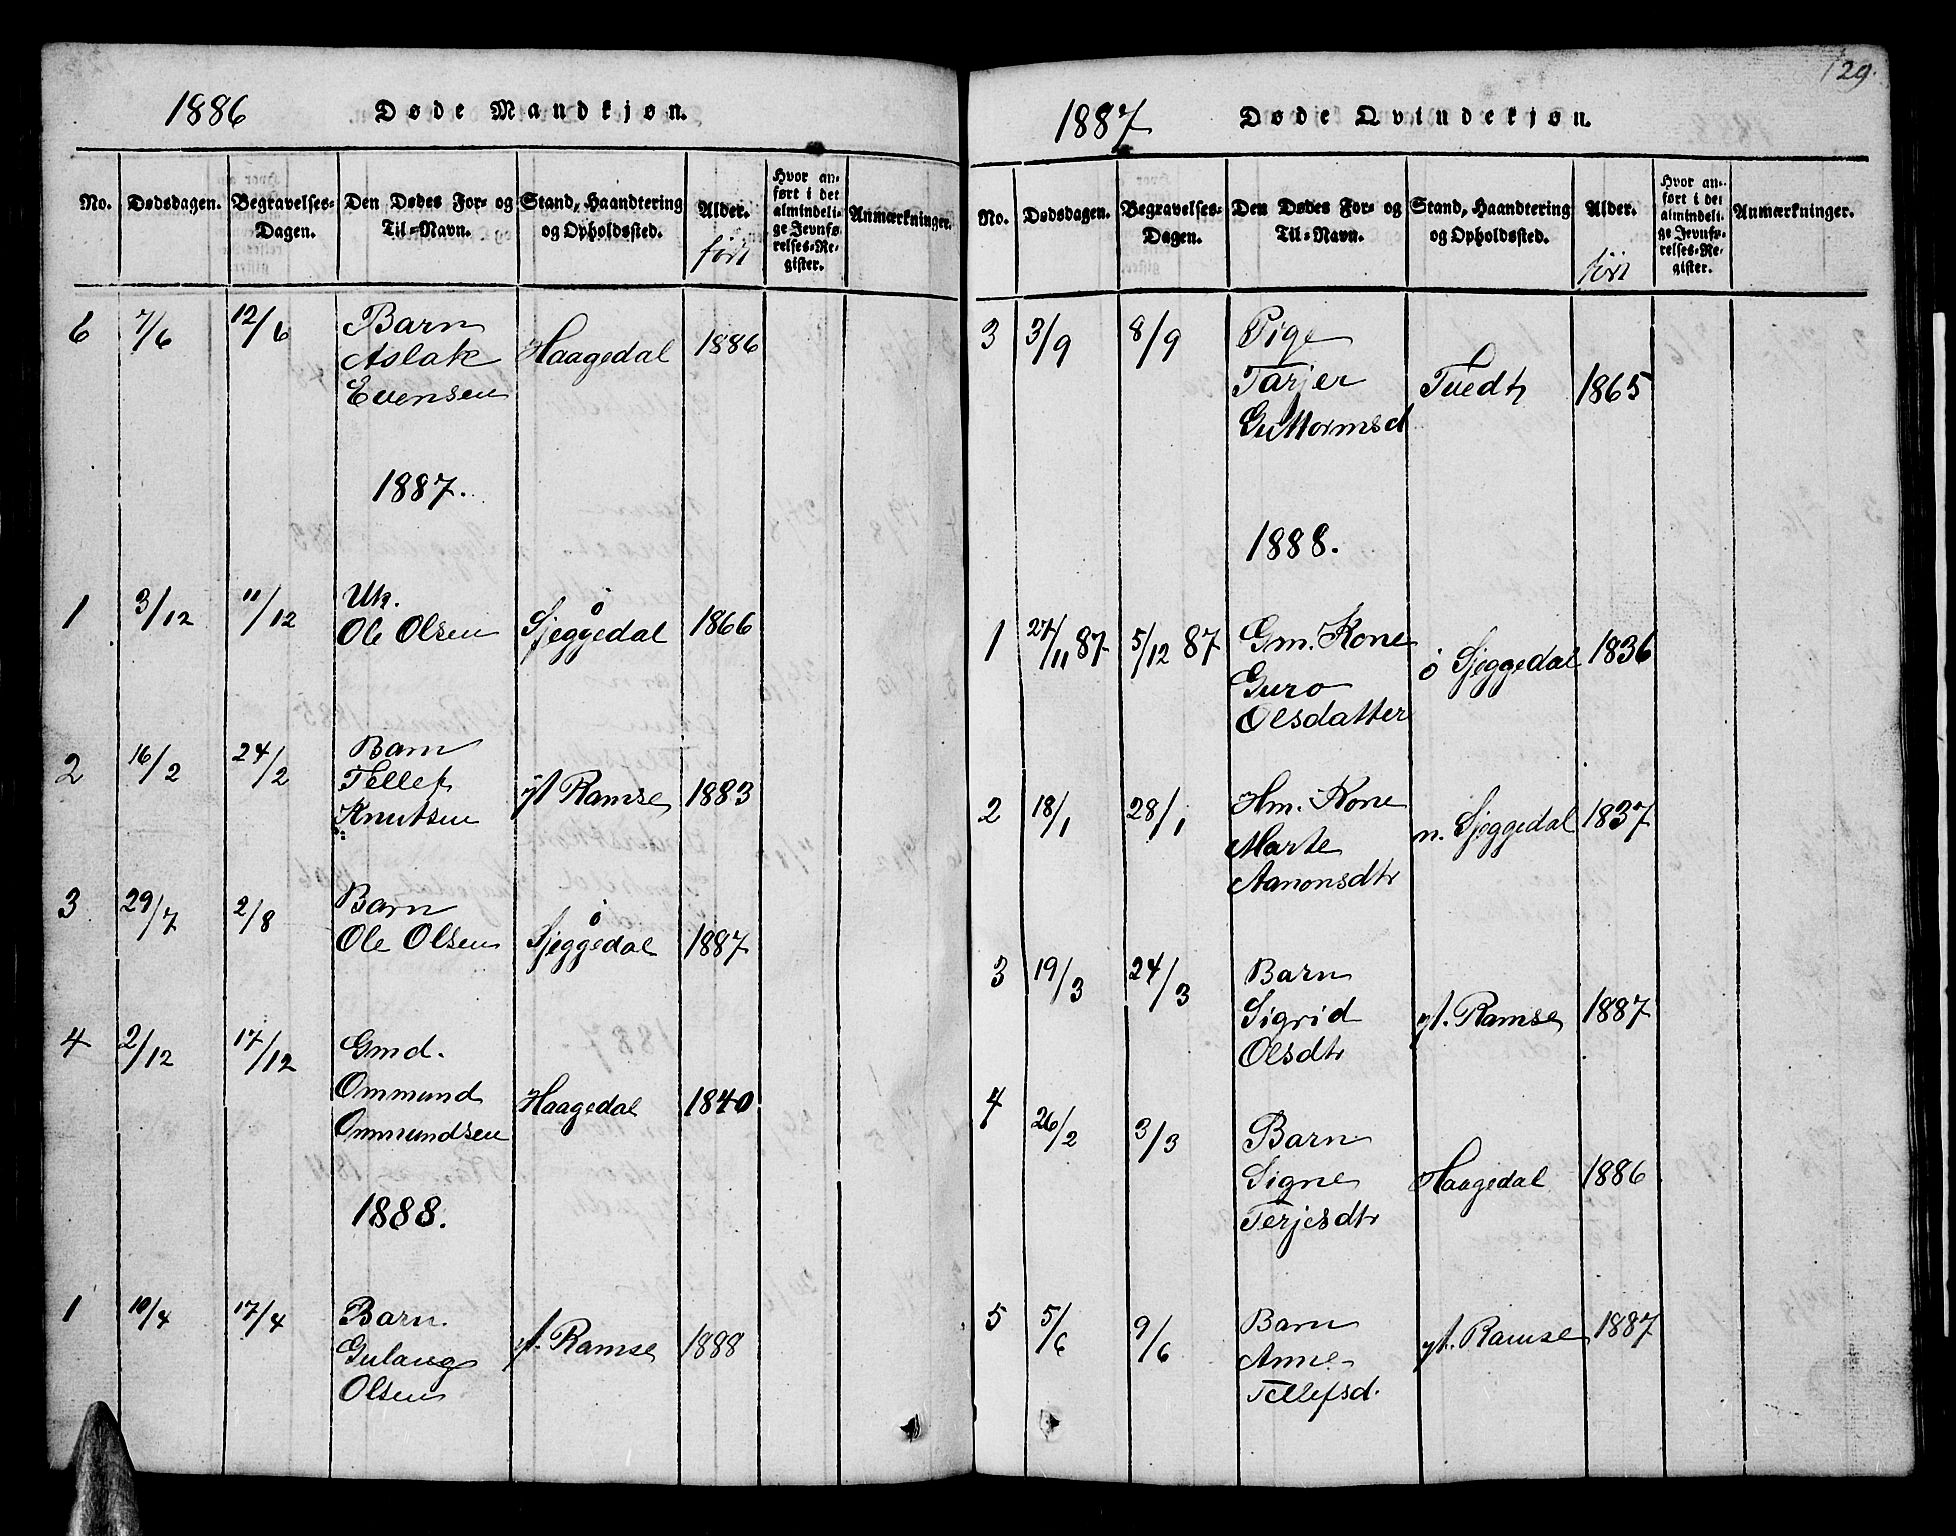 1886 Døde Mandkjøn.
No. Dødsdagen. Begravelses-Dagen. Den Dødes For- og Til-Navn. Stand, Haandtering og Opholdssted. Alder. født Hvor anført i det almindelige Jevnførelses-Register. Anmærkninger.
6 7/6 12/6 Barn
Aslak Haagedal 1886
Evensen
1887.
1 3/12 11/12 Uk.
Ole Olsen ø Sjeggedal 1866
2 16/2 24/2 Barn
Tellef yt Ramse 1883
Knutsen
3 29/7 2/8 Barn
Ole Olsen ø Sjeggedal 1887
4 2/12 17/12 Gmd.
Ommund Haagedal 1840
Ommundsen
1888.
1 10/4 17/4 Barn
Gulaug yt. Ramse 1888
Olsen
129.
1887 Døde Qvindekjøn.
No. Dødsdagen. Begravelses-Dagen. Den Dødes For- og Til-Navn. Stand, Haandtering og Opholdssted. Alder. født Hvor anført i det almindelige Jevnførelses-Register. Anmærkninger.
3 3/9 8/9 Pige
Tarjer Tvedt 1865
Guttormsd
1888.
1 27/11 87 5/12 87 Gm. Kone
Guro ø Sjeggedal 1836
Olsdatter
2 18/1 28/1 Hm. Kone
Marte n. Sjeggedal 1837
Aanonsdtr
3 19/3 24/3 Barn
Sigrid yt. Ramse 1887
Olsdtr
4 26/2 3/3 Barn
Signe Haagedal 1886
Terjesdtr
5 5/6 9/6 Barn
Anne yt. Ramse 1887
Tellefsd.